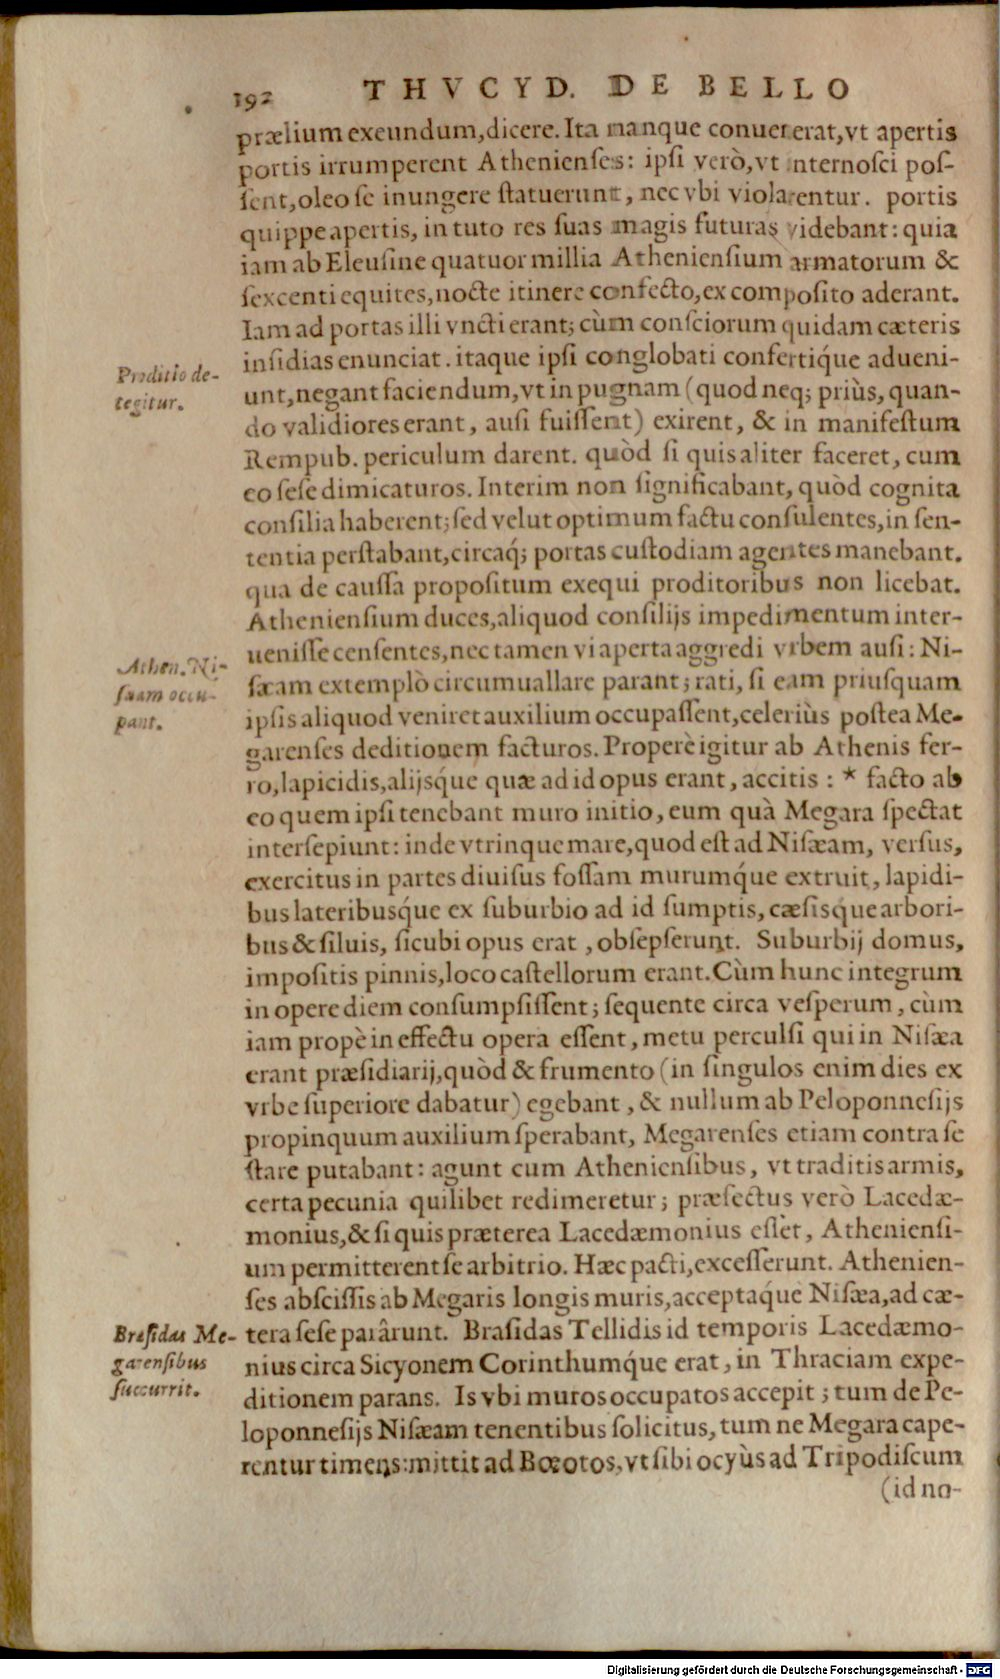 192 THVCYD. DE BELLO
prælium exeundum, dicere. Ita nanque conuenerat, vt apertis
portis irrumperent Athenienses: ipsi verò, vt internosci pos-
sent, oleo se inungere statuerunt, nec vbi violarentur. portis
quippe apertis, in tuto res suas magis futuras videbant: quia
iam ab Eleusine quatuor millia Atheniensium armatorum &
sexcenti equites, nocte itinere confecto, ex composito aderant.
Iam ad portas illi vncti erant; cùm consciorum quidam cæteris
insidias enunciat. itaque ipsi conglobati confertiq́ue adueni-
Proditio de-
tegitur.
unt, negant faciendum, vt in pugnam (quod neq; priùs, quan-
do validiores erant, ausi fuissent) exirent, & in manifestum
Rempub. periculum darent. quòd si quis aliter faceret, cum
eo sese dimicaturos. Interim non significabant, quòd cognita
consilia haberent; sed velut optimum factu consulentes, in sen-
tentia perstabant, circaq́; portas custodiam agentes manebant.
qua de caussa propositum exequi proditoribus non licebat.
Atheniensium duces, aliquod consilijs impedimentum inter-
uenisse censentes, nec tamen vi aperta aggredi vrbem ausi: Ni-
Athen. Ni-
sæam occu-
pant.
sæam extemplò circumuallare parant; rati, si eam priusquam
ipsis aliquod veniret auxilium occupassent, celeriùs postea Me-
garenses deditionem facturos. Properè igitur ab Athenis fer-
ro, lapicidis, alijsq́ue quæ ad id opus erant, accitis: * facto ab
eo quem ipsi tenebant muro initio, eum quà Megara spectat
intersepiunt: inde vtrinque mare, quod est ad Nisæam, versus,
exercitus in partes diuisus fossam murumq́ue extruit, lapidi-
bus lateribusq́ue ex suburbio ad id sumptis, cæsisque arbori-
bus & siluis, sicubi opus erat, obsepserunt. Suburbij domus,
impositis pinnis, loco castellorum erant. Cùm hunc integrum
in opere diem consumpsissent; sequente circa vesperum, cùm
iam propè in effectu opera essent, metu perculsi qui in Nisæa
erant præsidiarij, quòd & frumento (in singulos enim dies ex
vrbe superiore dabatur) egebant, & nullum ab Peloponnesijs
propinquum auxilium sperabant, Megarenses etiam contra se
stare putabant: agunt cum Atheniensibus, vt traditis armis,
certa pecunia quilibet redimeretur; præfectus verò Lacedæ-
monius, & si quis præterea Lacedæmonius esset, Atheniensi-
um permitterent se arbitrio. Hæc pacti, excesserunt. Athenien-
ses abscissis ab Megaris longis muris, acceptaq́ue Nisæa, ad cæ-
tera sese parârunt. Brasidas Tellidis id temporis Lacedæmo-
Brasidas Me-
garensibus
succurrit.
nius circa Sicyonem Corinthumq́ue erat, in Thraciam expe-
ditionem parans. Is vbi muros occupatos accepit; tum de Pe-
loponnesijs Nisæam tenentibus solicitus, tum ne Megara cape-
rentur timens: mittit ad Bœotos, vt sibi ocyùs ad Tripodiscum
(id no-
Digitalisierung gefördert durch die Deutsche Forschungsgemeinschaft - DFG